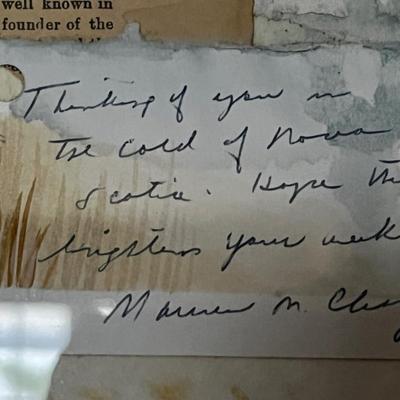 well known in
founder of the
Thinking of you in
the cold of Nova
Scotia. Hope th
brightens your week
M.